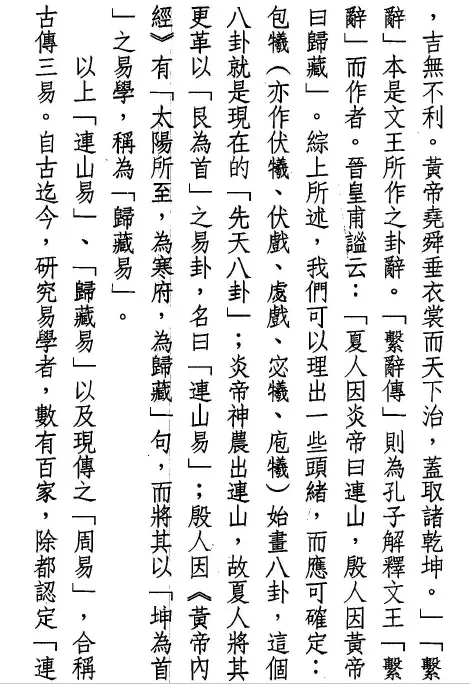 ，吉無不利。黃帝堯舜垂衣裳而天下治，蓋取諸乾坤。」「繫
辭」本是文王所作之卦辭。「繫辭傳」則為孔子解釋文王「繫
辭」而作者。晉皇甫謐云：「夏人因炎帝曰連山，殷人因黃帝
曰歸藏」。綜上所述，我們可以理出一些頭緒，而應可確定：
包犧（亦作伏犧、伏戲、處戲、宓犧、庖犧）始畫八卦，這個
八卦就是現在的「先天八卦」；炎帝神農出連山，故夏人將其
更革以「艮為首」之易卦，名曰「連山易」；殷人因《黃帝內
經》有「太陽所至，為寒府，為歸藏」句，而將其以「坤為首
」之易學，稱為「歸藏易」。
以上「連山易」、「歸藏易」以及現傳之「周易」，合稱
古傳三易。自古迄今，研究易學者，數有百家，除都認定「連